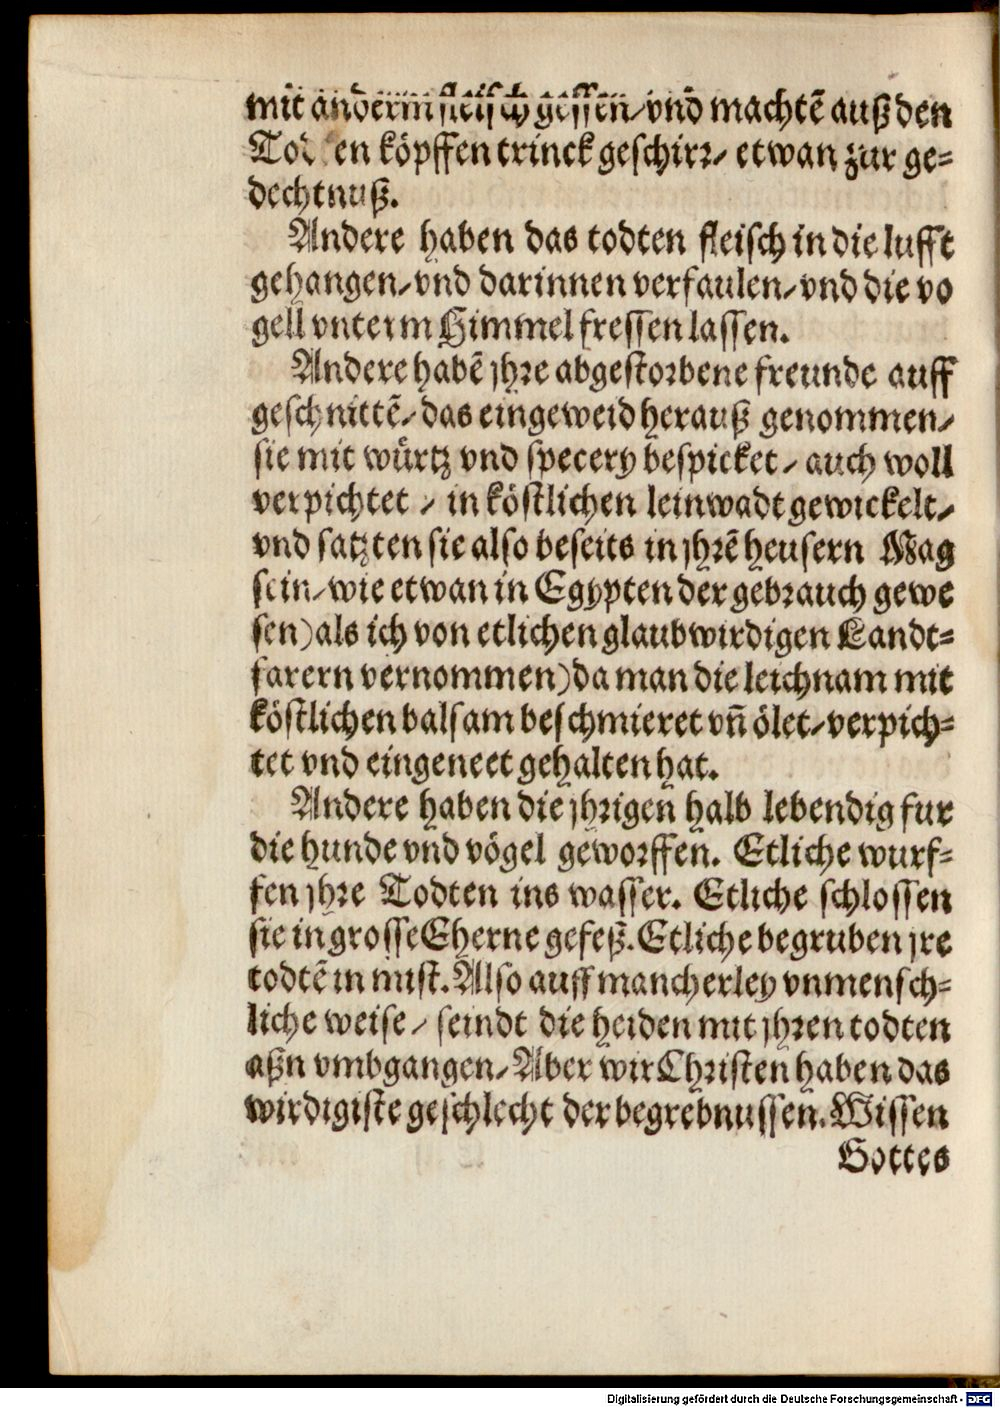 mit anderm fleisch gessen/ vnd machtē auß den
Todten köpffen trinck geschirr/ etwan zur ge=
dechtnuß.
Andere haben das todten fleisch in die lufft
gehangen/ vnd darinnen verfaulen/ vnd die vo
gell vnterm Himmel fressen lassen.
Andere habē jhre abgestorbene freunde auff
geschnittē/ das eingeweid herauß genommen/
sie mit würtz vnd specery bespicket/ auch woll
verpichtet / in köstlichen leinwadt gewickelt/
vnd satzten sie also beseits in jhrē heusern Mag
sein/ wie etwan in Egypten der gebrauch gewe
sen) als ich von etlichen glaubwirdigen Landt=
farern vernommen) da man die leichnam mit
köstlichen balsam beschmieret vñ ölet/ verpich=
tet vnd eingeneet gehalten hat.
Andere haben die jhrigen halb lebendig fur
die hunde vnd vögel geworffen. Etliche wurf=
fen jhre Todten ins wasser. Etliche schlossen
sie in grosse Eherne gefeß. Etliche begruben jre
todtē in mist. Also auff mancherley vnmensch=
liche weise/ seindt die heiden mit jhren todten
aßn vmbgangen/ Aber wir Christen haben das
wirdigiste geschlecht der begrebnussen. Wissen
Gottes
Digitalisierung gefördert durch die Deutsche Forschungsgemeinschaft - DFG